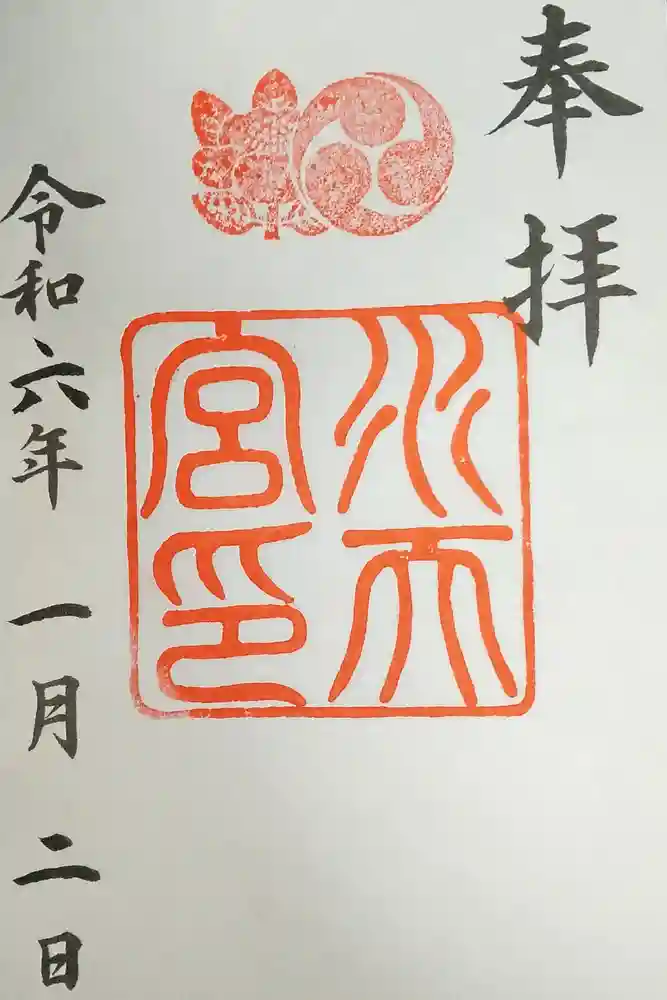 奉拝
水天
宮印
令和六年 一月 二日